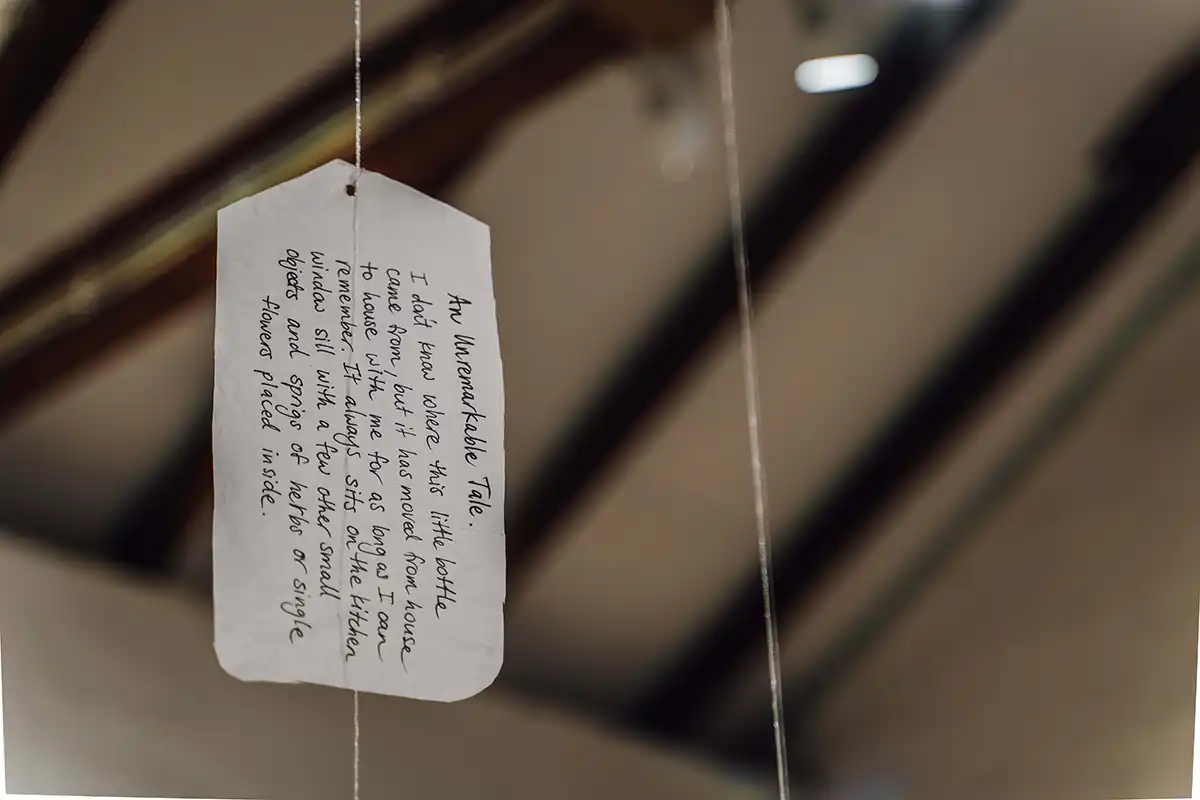 An Unremarkable Tale.
I don't know where this little bottle
came from, but it has moved from house
to house with me for as long as I can
remember. It always sits on the kitchen
window sill with a few other small
objects and sprigs of herbs or single
flowers placed inside.